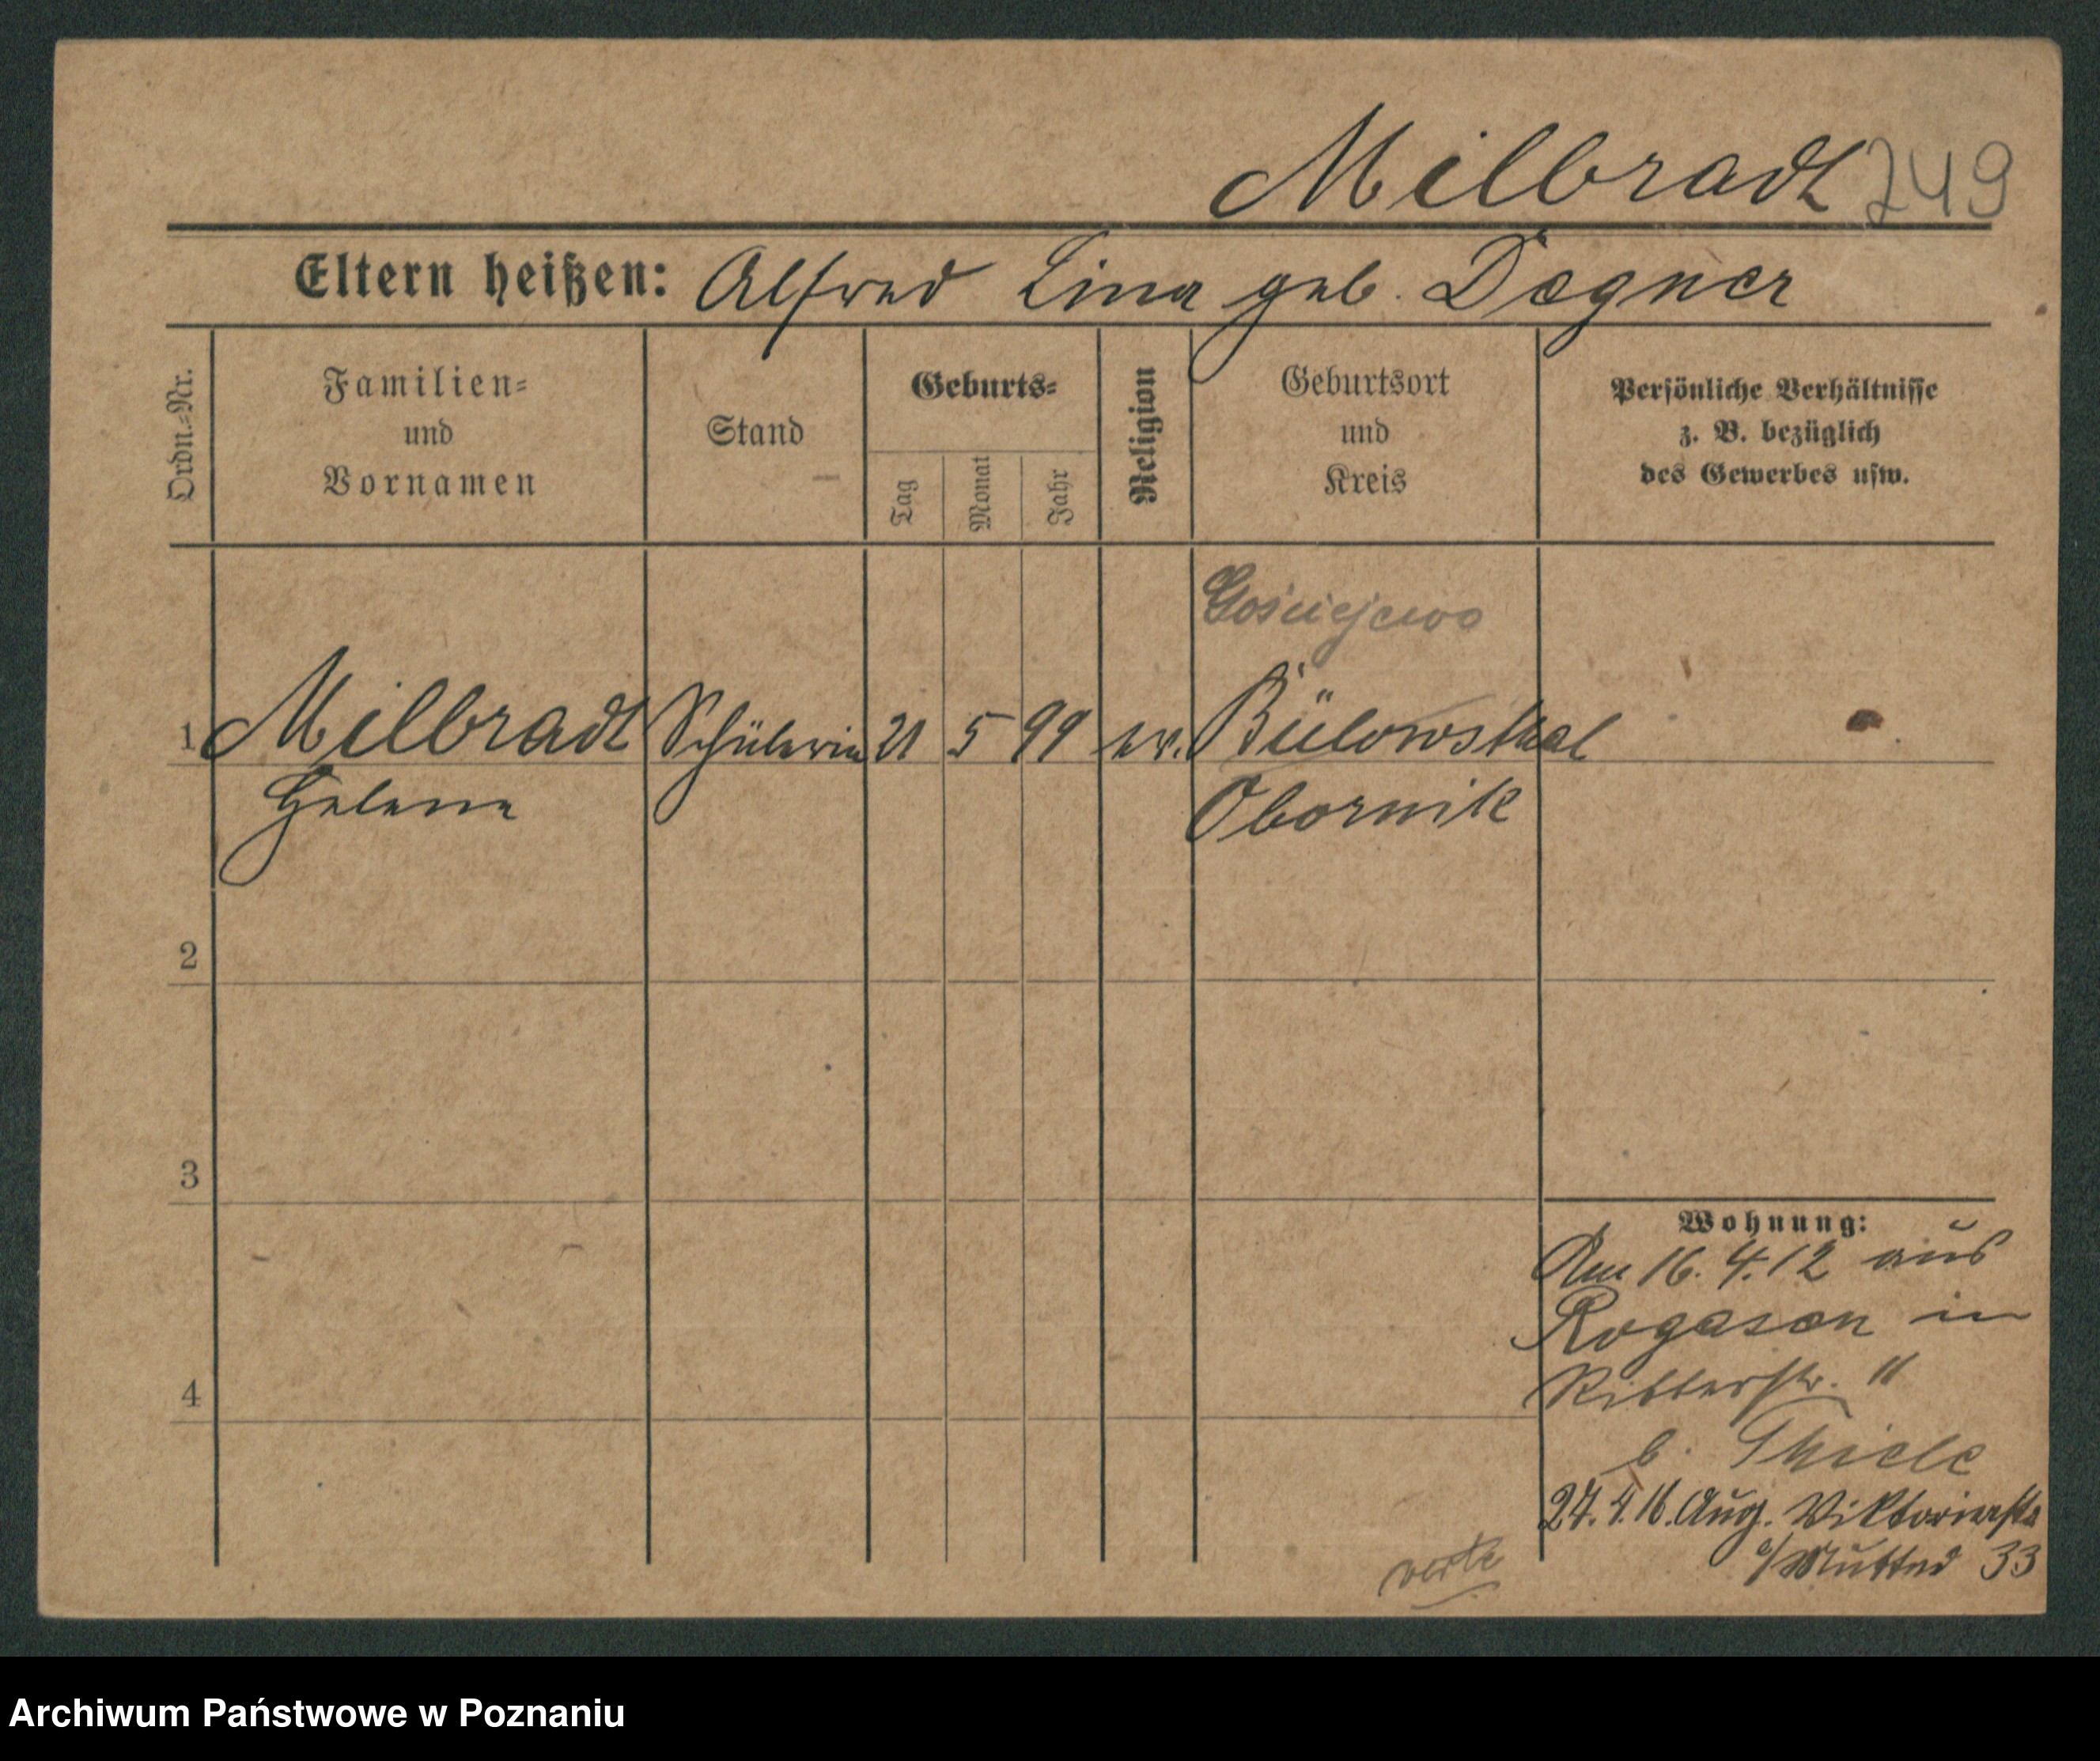 Milbradt 249
Eltern heißen: Alfred Lina geb. Degner
Ordn.=Nr.
Familien=
und
Vornamen
Stand
Geburts=
Tag
Monat
Jahr
Religion
Geburtsort
und
Kreis
Persönliche Verhältnisse
z. B. bezüglich
des Gewerbes usw.
Gościejewo
1 Milbradt Schülerin 21 5 99 ev. Bülowsthal
Helene Obornik
2
3
4
Wohnung:
Am 16. 4. 12 aus
Rogasen in
Ritterstr. 11
b. Thiele
27. 4. 16. Aug. Viktoriastr
33
verte
Archiwum Państwowe w Poznaniu